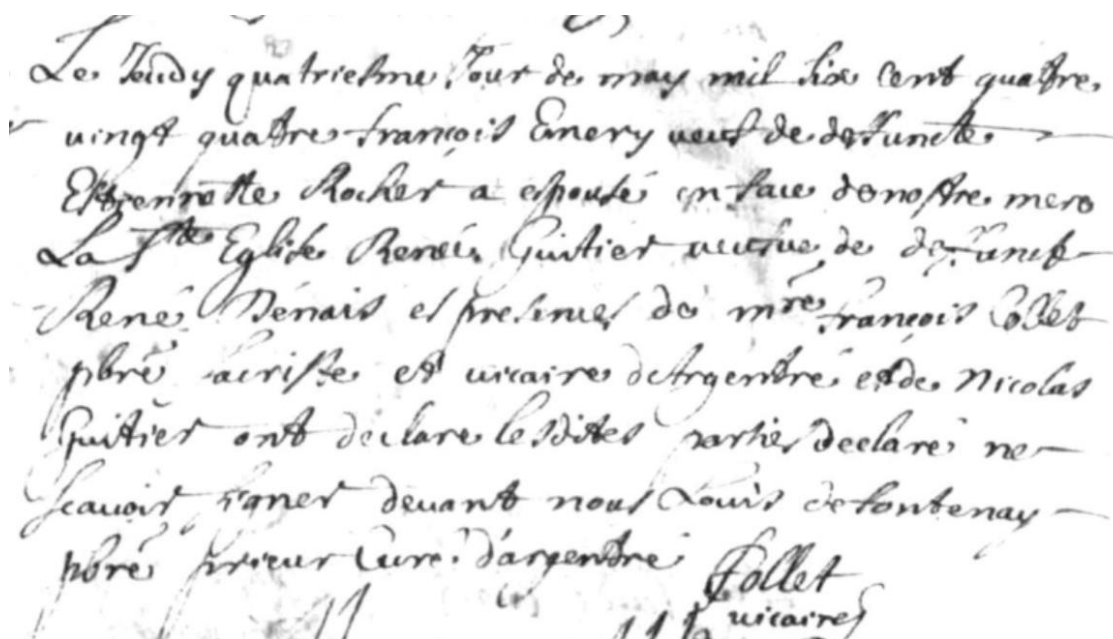 Le Jeudy quatriesme Jour de may mil six cent quatre
vingt quatre françois Emery veuf de deffuncte
Estiennette Rocher a espousé en face de nostre mere
La Ste Eglise Renée Guitier veufve de deffunct
René Benais es presences de mre françois Collet
pbre sacriste et vicaire d'Argentré et de Nicolas
Guitier ont declare lesdites parties declaré ne
scavoir signer devant nous Louis de fontenay
pbre prieur Curé d'argentré
FCollet
vicaire